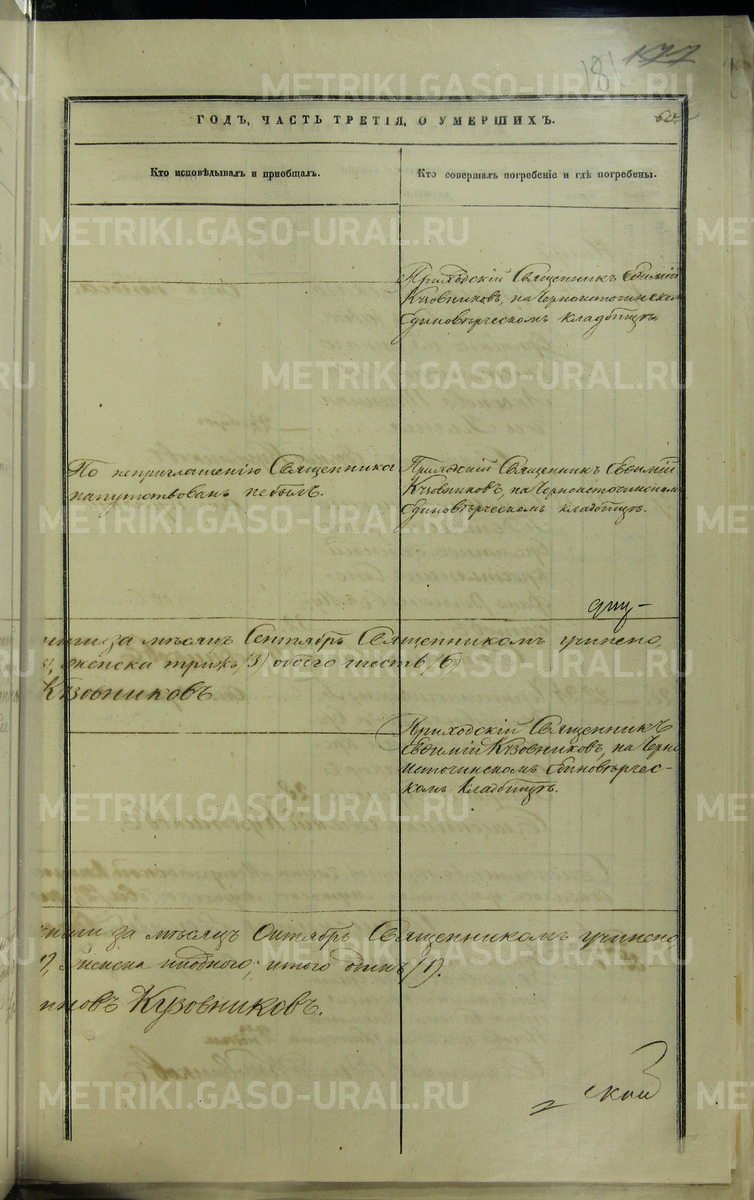 181 177
ГОДЪ, ЧАСТЬ ТРЕТІЯ, О УМЕРШИХЪ.
60
Кто исповѣдывалъ и пріобщалъ.
Кто совершалъ погребеніе и гдѣ погребены.
Приходскій Священникъ Евѳимій
Кузовниковъ, на Черноисточинском
Единовѣрческомъ кладбищѣ.
По неприглашенію Священника
напутствованъ не былъ.
Приходскій Священникъ Евѳимій
Кузовниковъ, на Черноисточинском
Единовѣрческомъ кладбищѣ.
за мѣсяцъ Сентябрь Священникомъ учинено,
женска трижъ (3) обоего шесть (6)
Кузовниковъ
Приходскій Священникъ
Евѳимій Кузовниковъ, на Черно
Источинскомъ Единовѣрчес-
комъ кладбищѣ.
за мѣсяцъ Октябрь Священникомъ учинено
женска ниодного; итого одинъ (1).
Кузовниковъ.
скои
METRIKI.GASO-URAL.RU